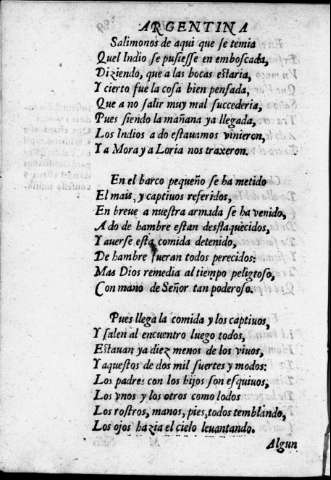 ARGENTINA
Salimonos de aqui que se temia
Quel Indio se pusiesse en emboscada,
Diziendo, que a las bocas estaria,
Y cierto fue la cosa bien pensada,
Que a no salir muy mal succederia,
Pues siendo la mañana ya llegada,
Los Indios a do estauamos vinieron,
Y a Mora y a Loria nos traxeron.
En el barco pequeño se ha metido
El mais, y captiuos referidos,
En breue a nuestra armada se ha venido,
A do de hambre estan desflaquecidos,
Y auerse esta comida detenido,
De hambre fueran todos perecidos:
Mas Dios remedia al tiempo peligroso,
Con mano de Señor tan poderoso.
Pues llega la comida y los captiuos,
Y salen al encuentro luego todos,
Estauan ya diez menos de los viuos,
Y aquestos de dos mil suertes y modos:
Los padres con los hijos son esquiuos,
Los vnos y los otros como lodos
Los rostros, manos, pies, todos temblando,
Los ojos hazia el cielo leuantando.
Algun